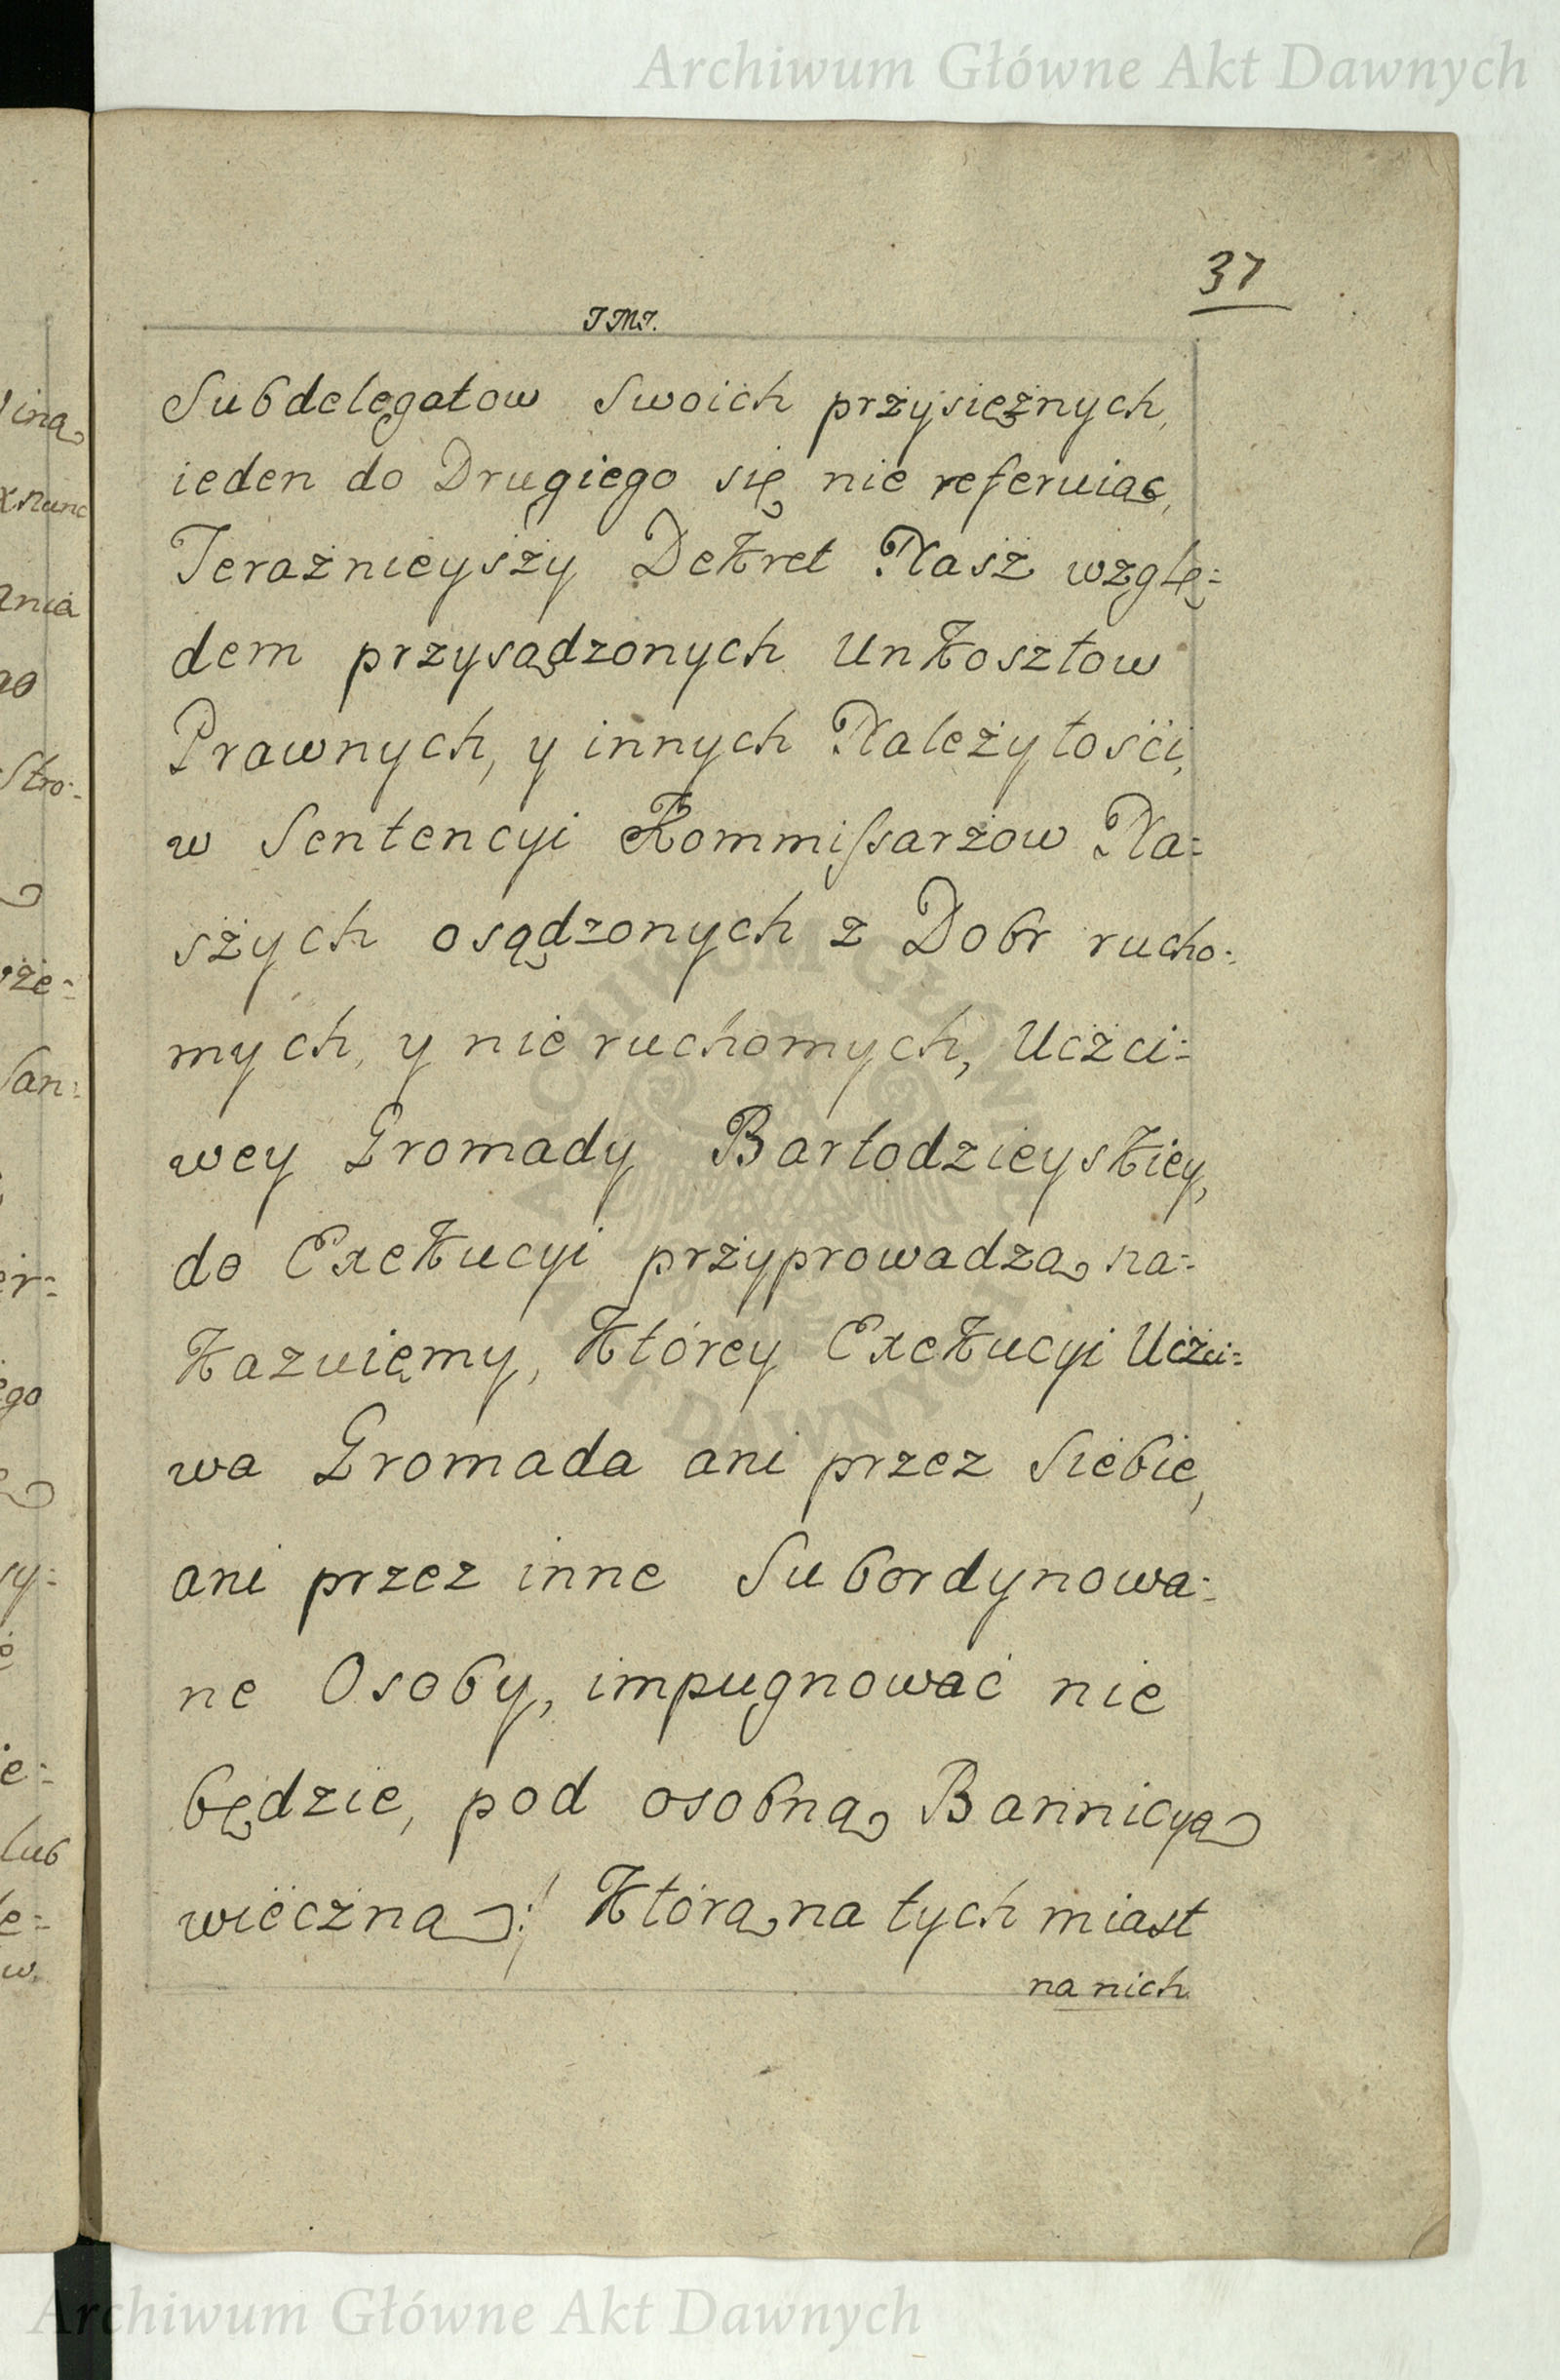 Archiwum Główne Akt Dawnych
37
J M J.
Subdelegatow swoich przysiężnych,
ieden do Drugiego się nie referuiąc,
Terażnieyszy Dekret Nasz wzglę=
dem przysądzonych Unkosztow
Prawnych, y innych Należytości,
w Sentencyi Kommissarzow Na=
szych osądzonych z Dobr rucho=
mych, y nie ruchomych, Uczci=
wey Gromady Bartodzieyskiey,
do Exekucyi przyprowadzą na=
kazuięmy, Którey Exekucyi Uczci=
wa Gromada ani przez Siebie,
ani przez inne Subordynowa=
ne Osoby, impugnować nie
będzie, pod osobną Bannicyą
wieczną! Którą na tych miast
na nich
ARCHIWUM GŁÓWNE
AKT DAWNYCH
Archiwum Główne Akt Dawnych